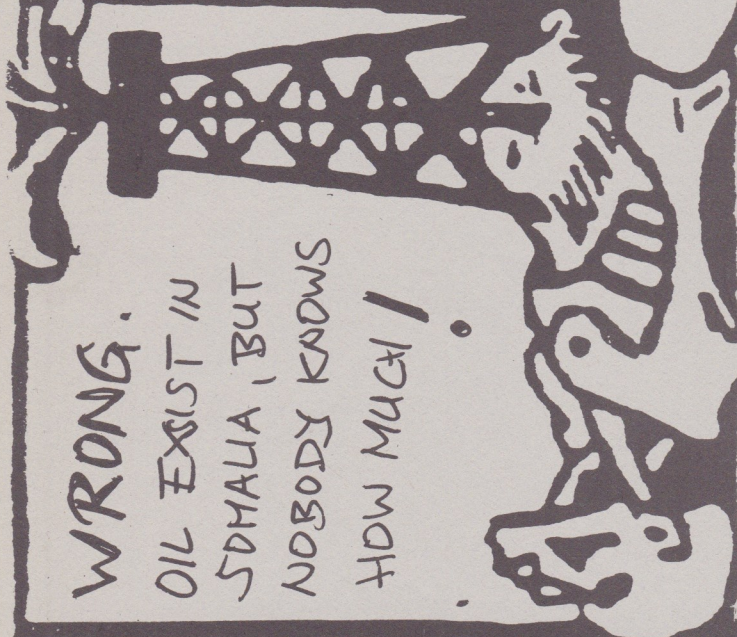 WRONG.
OIL EXIST IN
SOMALIA, BUT
NOBODY KNOWS
HOW MUCH!